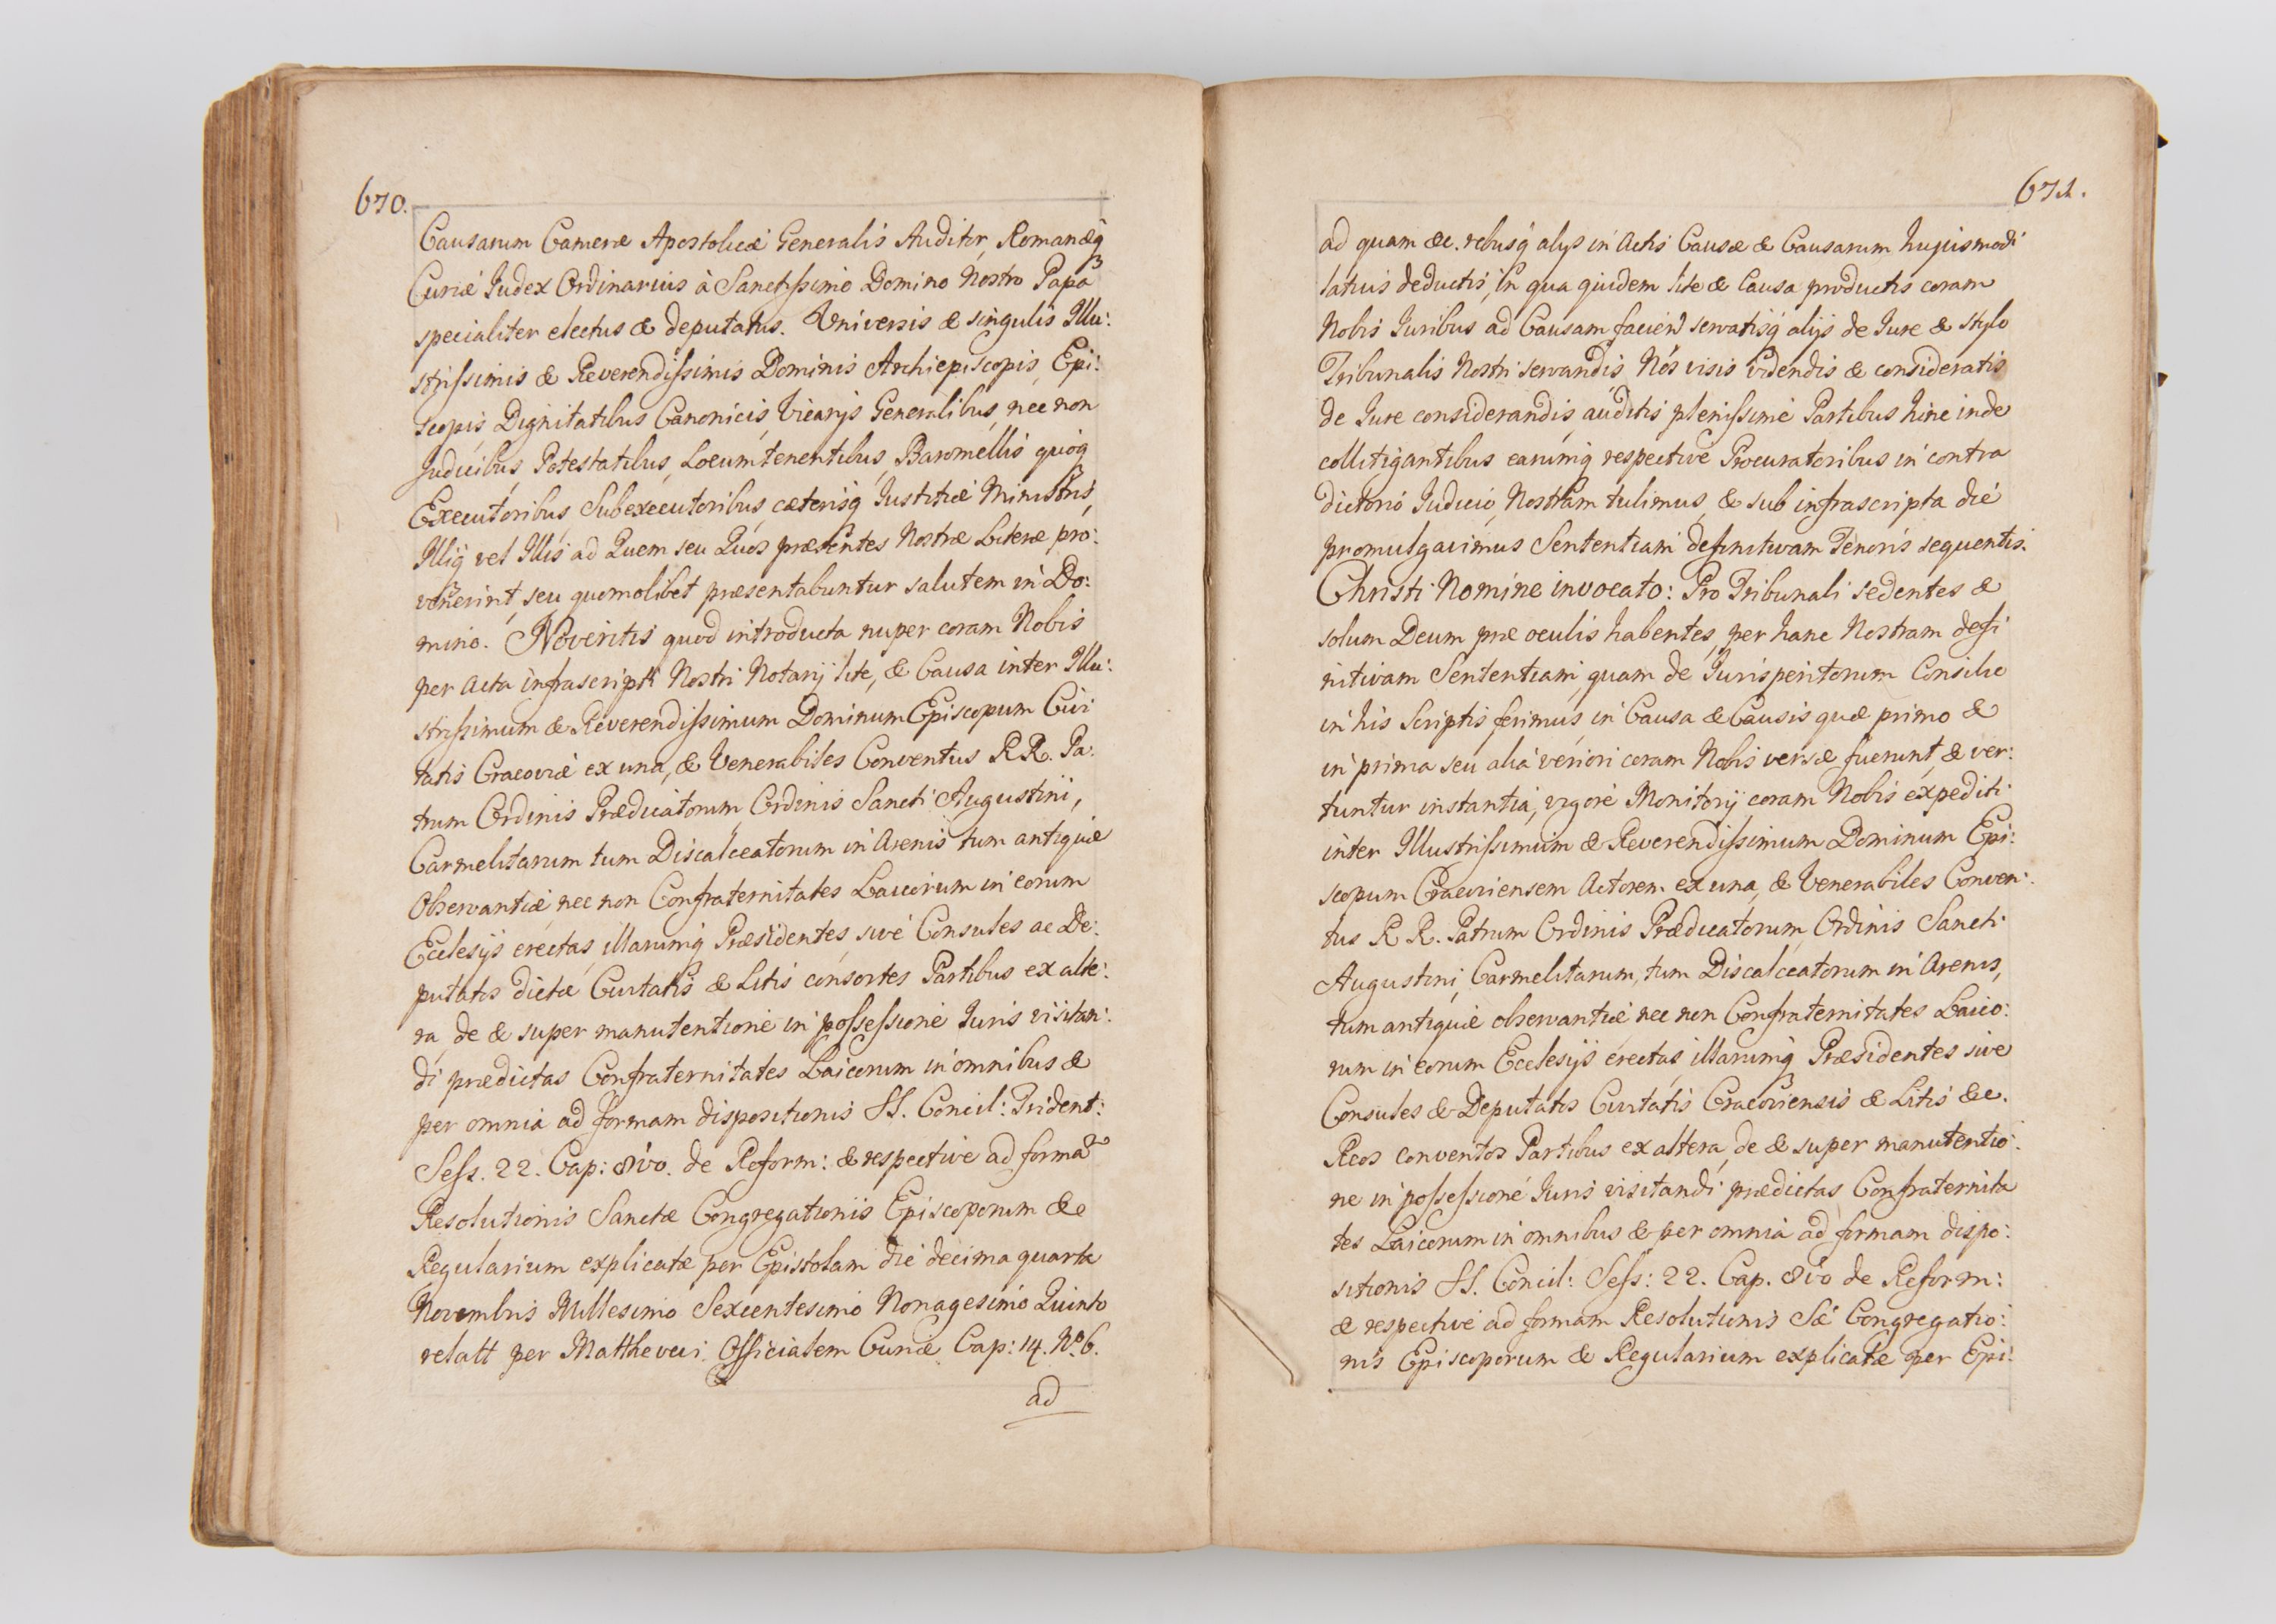 670.
Causarum Cameræ Apostolicæ Generalis Auditor, Romanæq
Curiæ Iudex Ordinarius à Sanctissimo Domino Nostro Papa
specialiter electus & deputatus. Universis & singulis Illu:
strissimis & Reverendissimis Dominis Archiepiscopis, Epi:
scopis, Dignitatibus Canonicis, Vicarijs Generalibus, nec non
Iudicibus, Potestatibus, Locumtenentibus, Baromellis quoq
Executoribus, Subexecutoribus, cæterisq Iustitiæ Ministris,
Illiq vel Illis ad Quem seu Quos præsentes Nostræ Literæ pro:
venerint, seu quomolibet præsentabuntur salutem in Do:
mino. Noveritis quod introducta nuper coram Nobis
per Acta infrascripti Nostri Notarij lite, & Causa inter Illu:
strissimum & Reverendissimum Dominum Episcopum Civi
tatis Cracoviæ ex una, & Venerabiles Conventus RR. Pa:
trum Ordinis Prædicatorum Ordinis Sancti Augustini,
Carmelitarum tum Discalceatorum in Arenis tum antiquæ
Observantiæ nec non Confraternitates Laicorum in eorum
Ecclesijs erectas, illarumq Præsidentes, sive Consules ac De:
putatos dictæ Civitatis & Litis consortes Partibus ex alte:
ra, de & super manutentione in possessione Iuris visitan:
di prædictas Confraternitates Laicorum in omnibus &
per omnia ad formam dispositionis SS. Concil: Trident:
Sess. 22. Cap: 8vo. de Reform: & respective ad forma
Resolutionis Sanctæ Congregationis Episcoporum &
Regularium explicatæ per Epistolam die decima quarta
Novembris Millesimo Sexcentesimo Nonagesimo Quinto
relatt per Mattheucci Officialem Curiæ Cap: 14. No 6.
ad
671.
ad quam &c. rebusq alys in Actis Causæ & Causarum hujusmodi
latius deductis, In qua quidem lite & Causa productis coram
Nobis Iuribus ad Causam faciend servatisq alijs de Iure & stylo
Tribunalis Nostri servandis, Nos visis videndis & consideratis
de Iure considerandis, auditis plenissime Partibus hinc inde
collitigantibus earumq respective Procuratoribus in contra
dictorio Iudicio, Nostram tulimus, & sub infrascripta die
promulgavimus Sententiam definitivam Tenoris sequentis.
Christi Nomine invocato: Pro Tribunali sedentes &
solum Deum præ oculis habentes, per hanc Nostram defi
nitivam Sententiam, quam de Iurisperitorum Consilio
in his Scriptis ferimus, in Causa & Causis quæ primo &
in prima seu alia veriori coram Nobis versæ fuerunt, & ver:
tuntur instantia, vigore Monitorij coram Nobis expediti
inter Illustrissimum & Reverendissimum Dominum Epi:
scopum Cracoviensem Actorem ex una, & Venerabiles Conven:
tus R R. Patrum Ordinis Prædicatorum, Ordinis Sancti
Augustini, Carmelitarum, tum Discalceatorum in Arenis,
tum antiquæ observantiæ nec non Confraternitates Laico:
rum in eorum Ecclesijs erectas, illarumq Præsidentes sive
Consules & Deputatos Civitatis Cracoviensis & Litis &c.
Reos conventos Partibus ex altera, de & super manutentio:
ne in possessione Iuris visitandi prædictas Confraternita
tes Laicorum in omnibus & per omnia ad formam dispo:
sitionis SS. Concil: Sess: 22. Cap. 8vo de Reform:
& respective ad formam Resolutionis Sæ Congregatio:
nis Episcoporum & Regularium explicatæ per Epi: